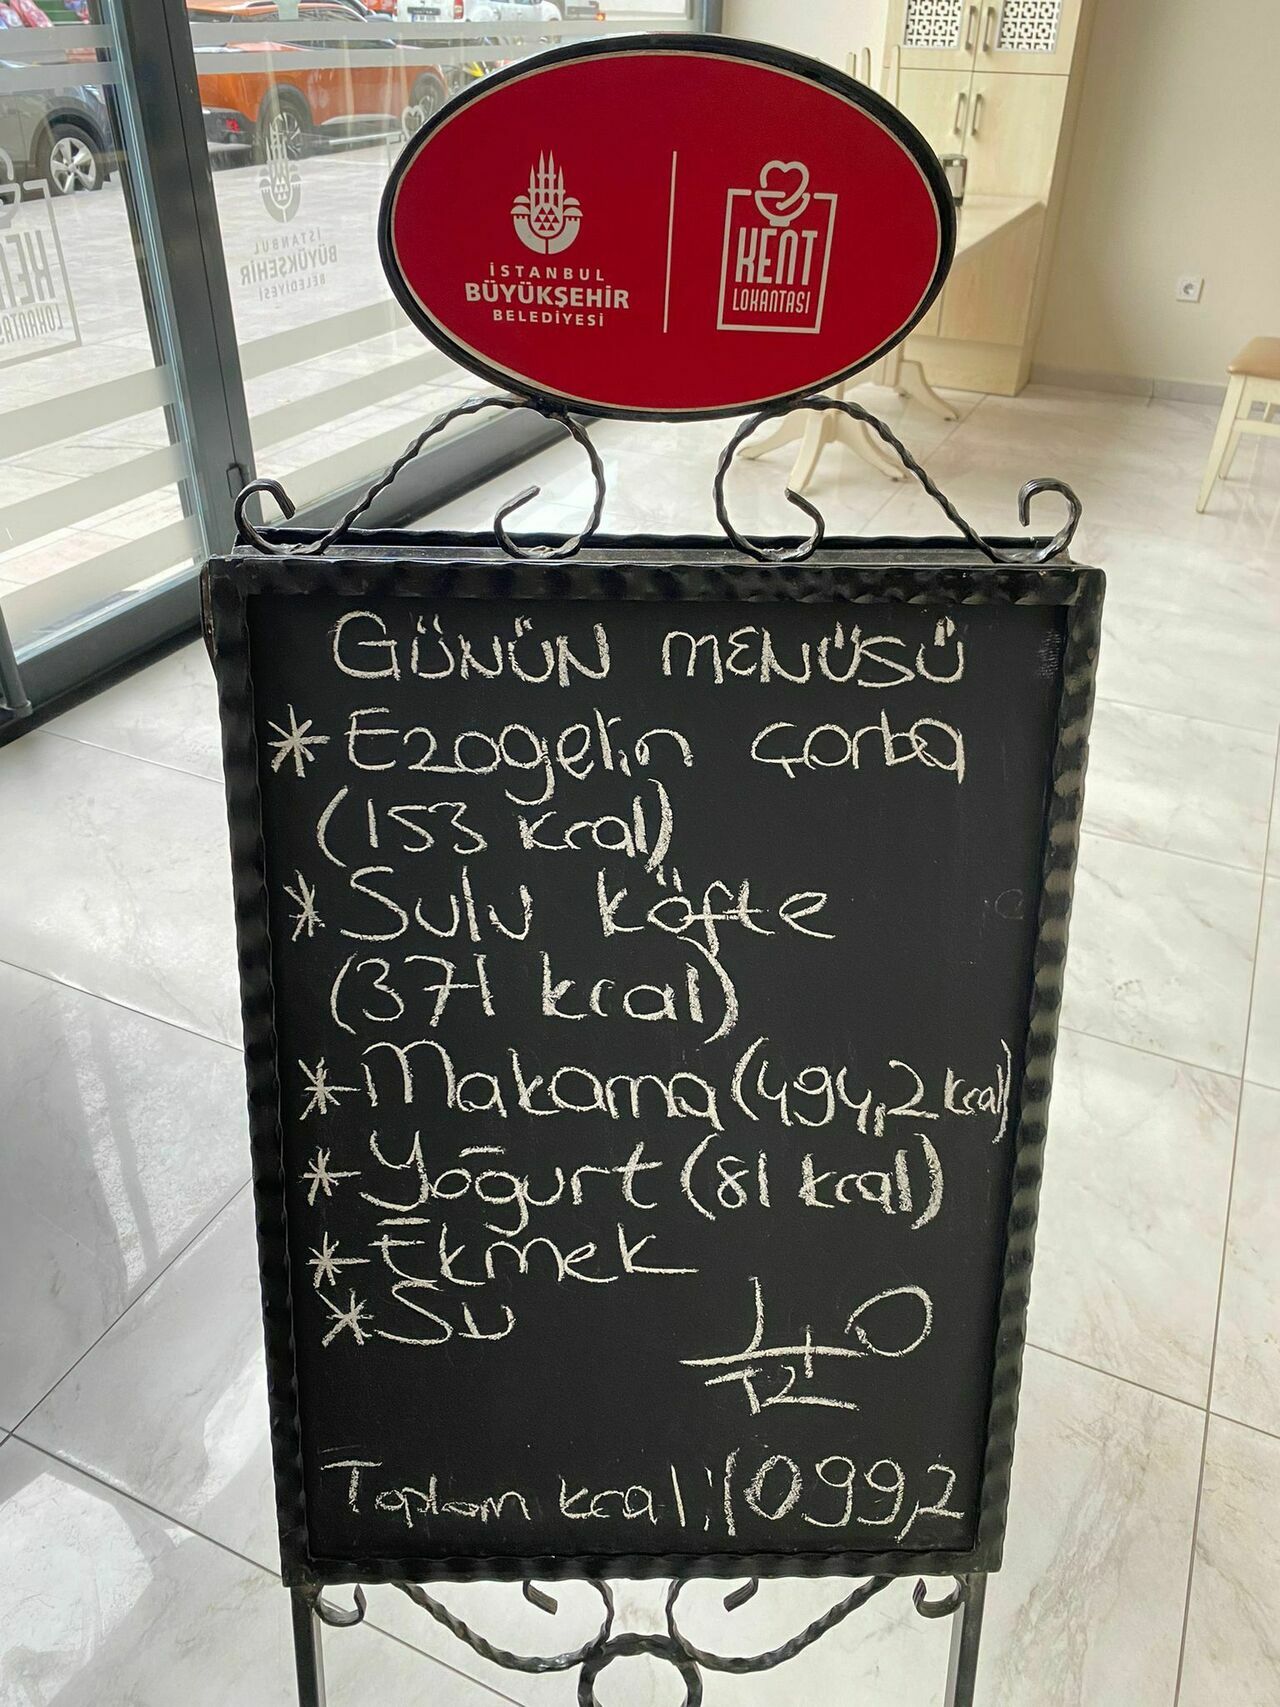 İSTANBUL
BÜYÜKŞEHİR
BELEDİYESİ
KENT
LOKANTASI
İSTANBUL
BÜYÜKŞEHİR
BELEDİYESİ
KENT
LOKANTASI
GÜNÜN MENÜSÜ
* Ezogelin çorba
(153 kcal)
* Sulu köfte
(371 kcal)
* Makarna (494,2 kcal)
* Yoğurt (81 kcal)
* Ekmek
* Su
40
TL
Toplam kcal: 1099,2